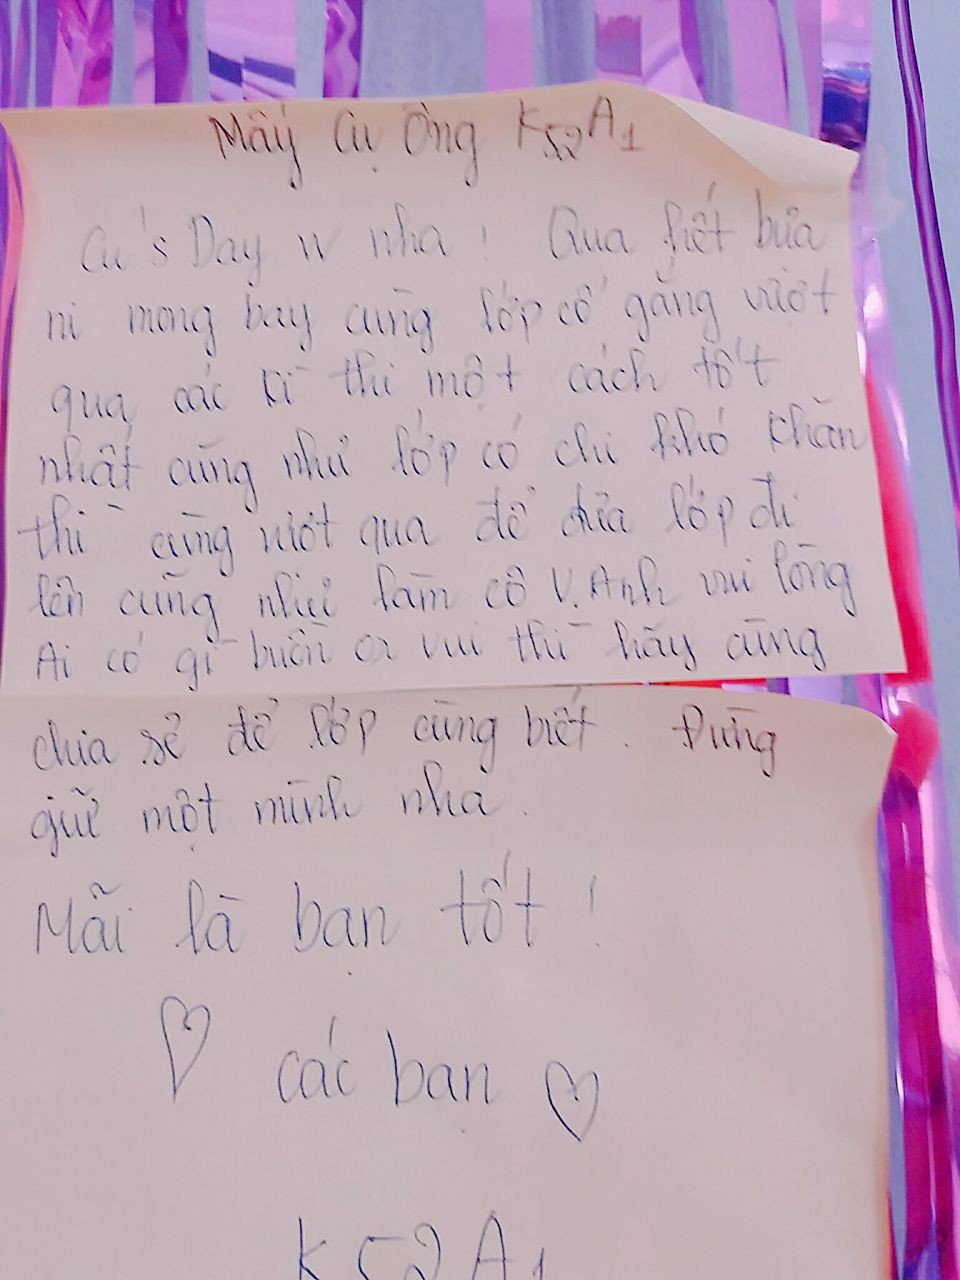 Mấy Cụ Ông K52A1
Cu's Day vv nha ! Qua hết bữa
ni mong bay cùng lớp cố gắng vượt
qua các kì thi một cách tốt
nhất cũng như lớp có chi khó khăn
thì cùng vượt qua để đưa lớp đi
lên cũng như làm cô V.Anh vui lòng
Ai có gì buồn or vui thì hãy cùng
chia sẻ để lớp cùng biết. Đừng
giữ một mình nha.
Mãi là bạn tốt !
♡ các bạn ♡
K52A1